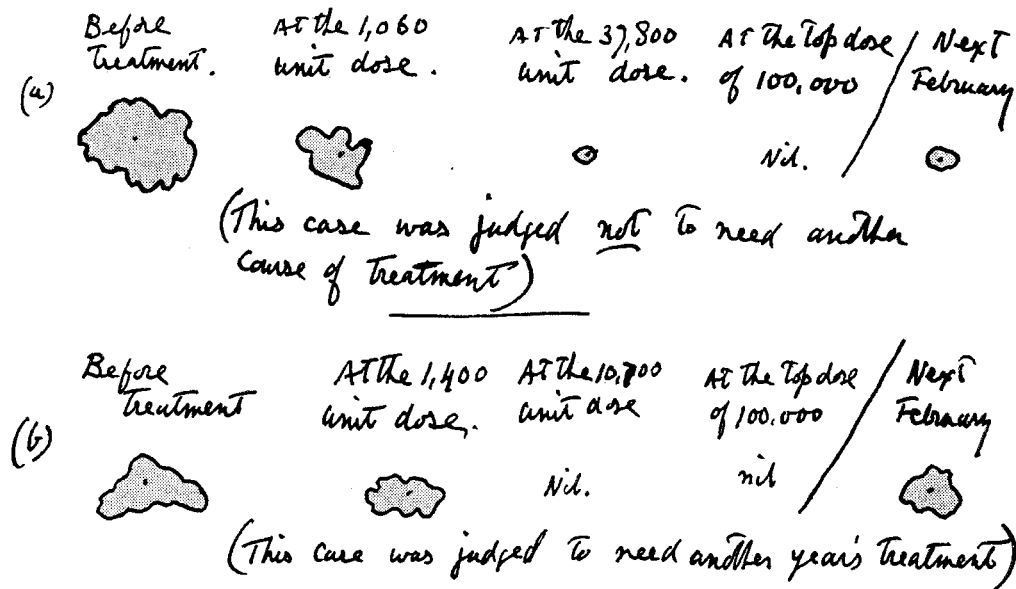 Before treatment.
At the 1,060 unit dose.
At the 37,800 unit dose.
At the top dose of 100,000
Next February
(a)
Nil.
(This case was judged not to need another
course of treatment)
Before treatment
At the 1,400 unit dose.
At the 10,700 unit dose
At the top dose of 100.000
Next February
(b)
Nil.
nil
(This case was judged to need another year's treatment)